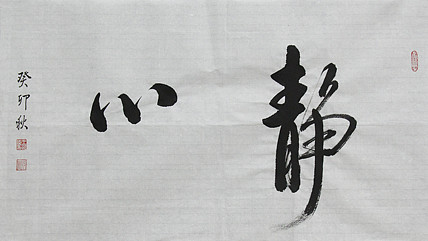 静心
癸卯秋